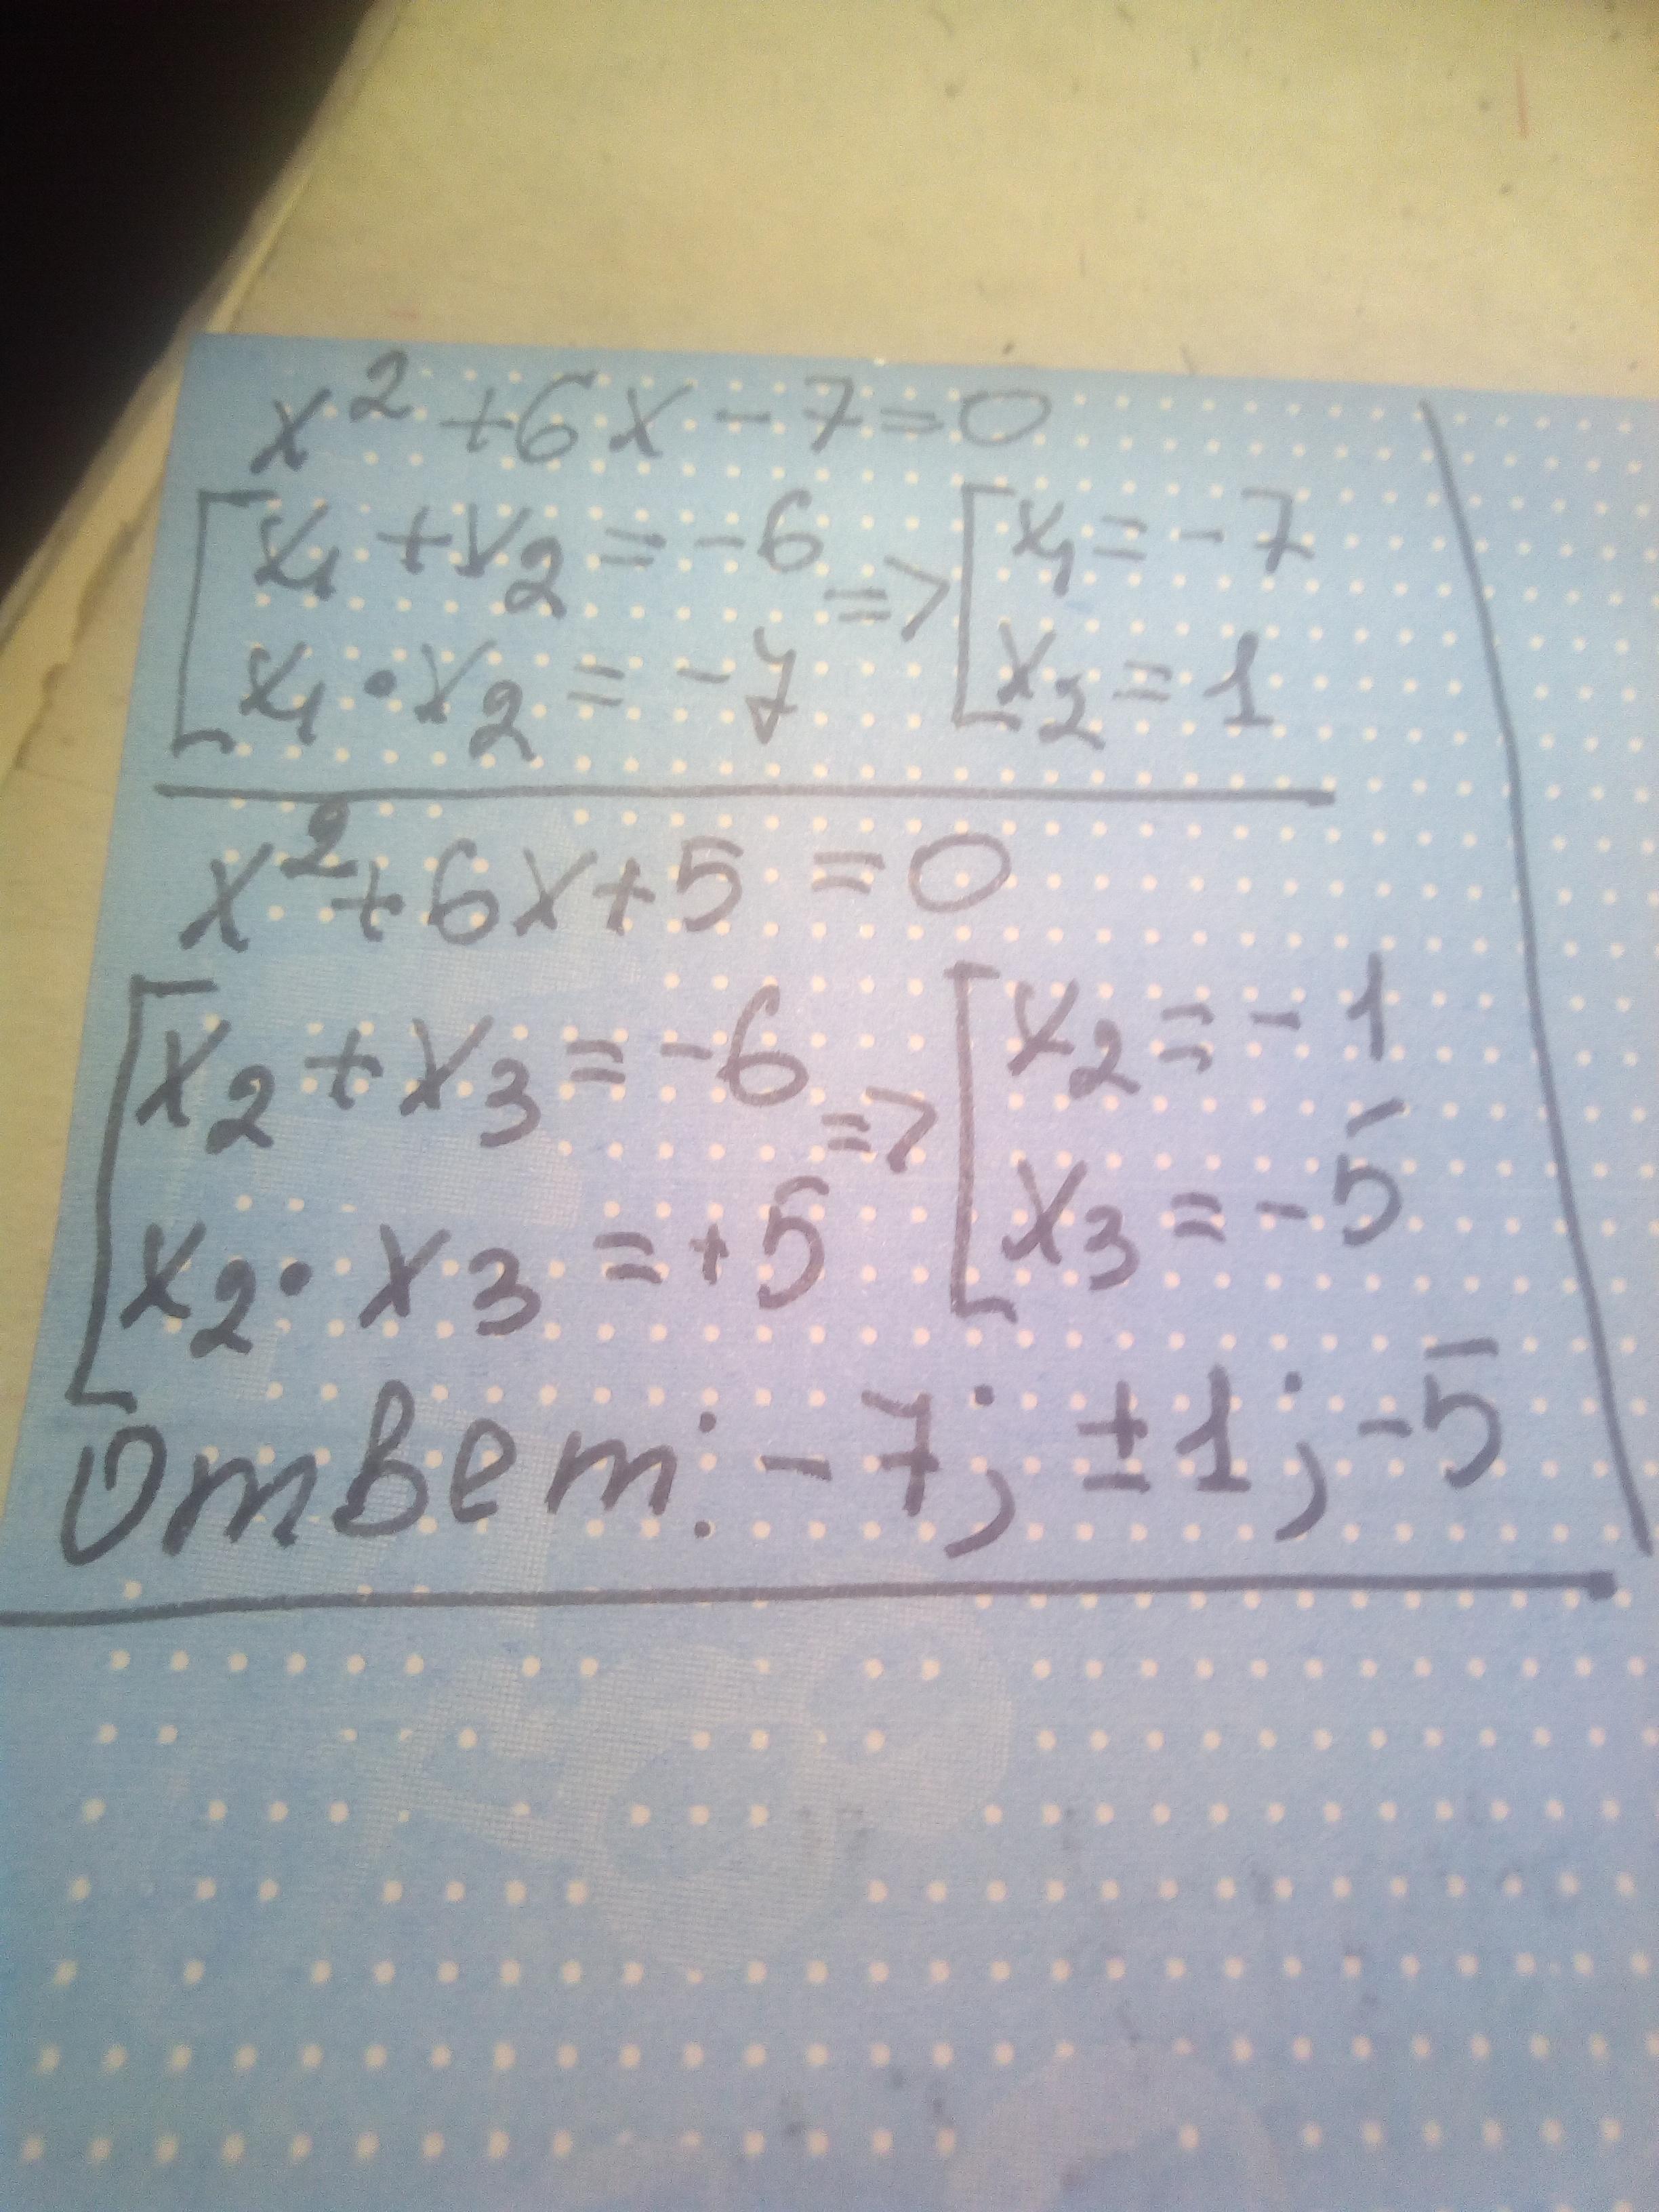 x² + 6x - 7 = 0
[x₁ + x₂ = -6 => [x₁ = -7
x₁ · x₂ = -7 x₂ = 1
x² + 6x + 5 = 0
[x₂ + x₃ = -6 => [x₂ = -1
x₂ · x₃ = +5 x₃ = -5
Ответ: -7; ±1; -5